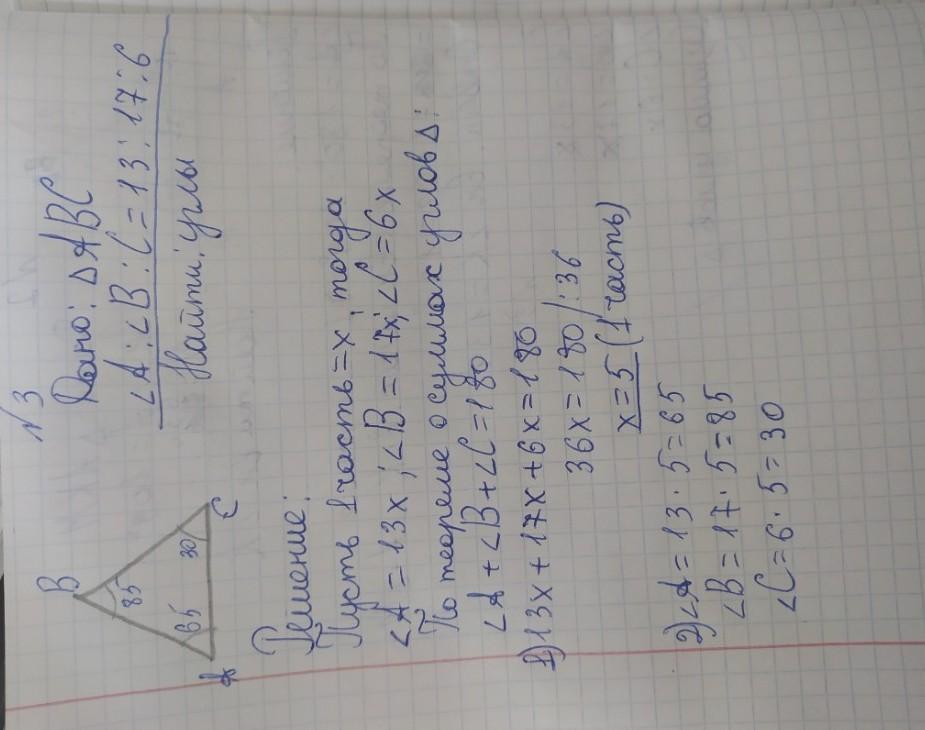 N3
Дано: ΔABC
∠A:∠B:∠C=13:17:6
Найти: углы
B
85
65
30
A
C
Решение:
Пусть 1 часть=x, тогда
∠A=13x; ∠B=17x; ∠C=6x
По теореме о суммах углов Δ:
∠A+∠B+∠C=180
1)13x+17x+6x=180
36x=180/:36
x=5 (1 часть)
2)∠A=13·5=65
∠B=17·5=85
∠C=6·5=30